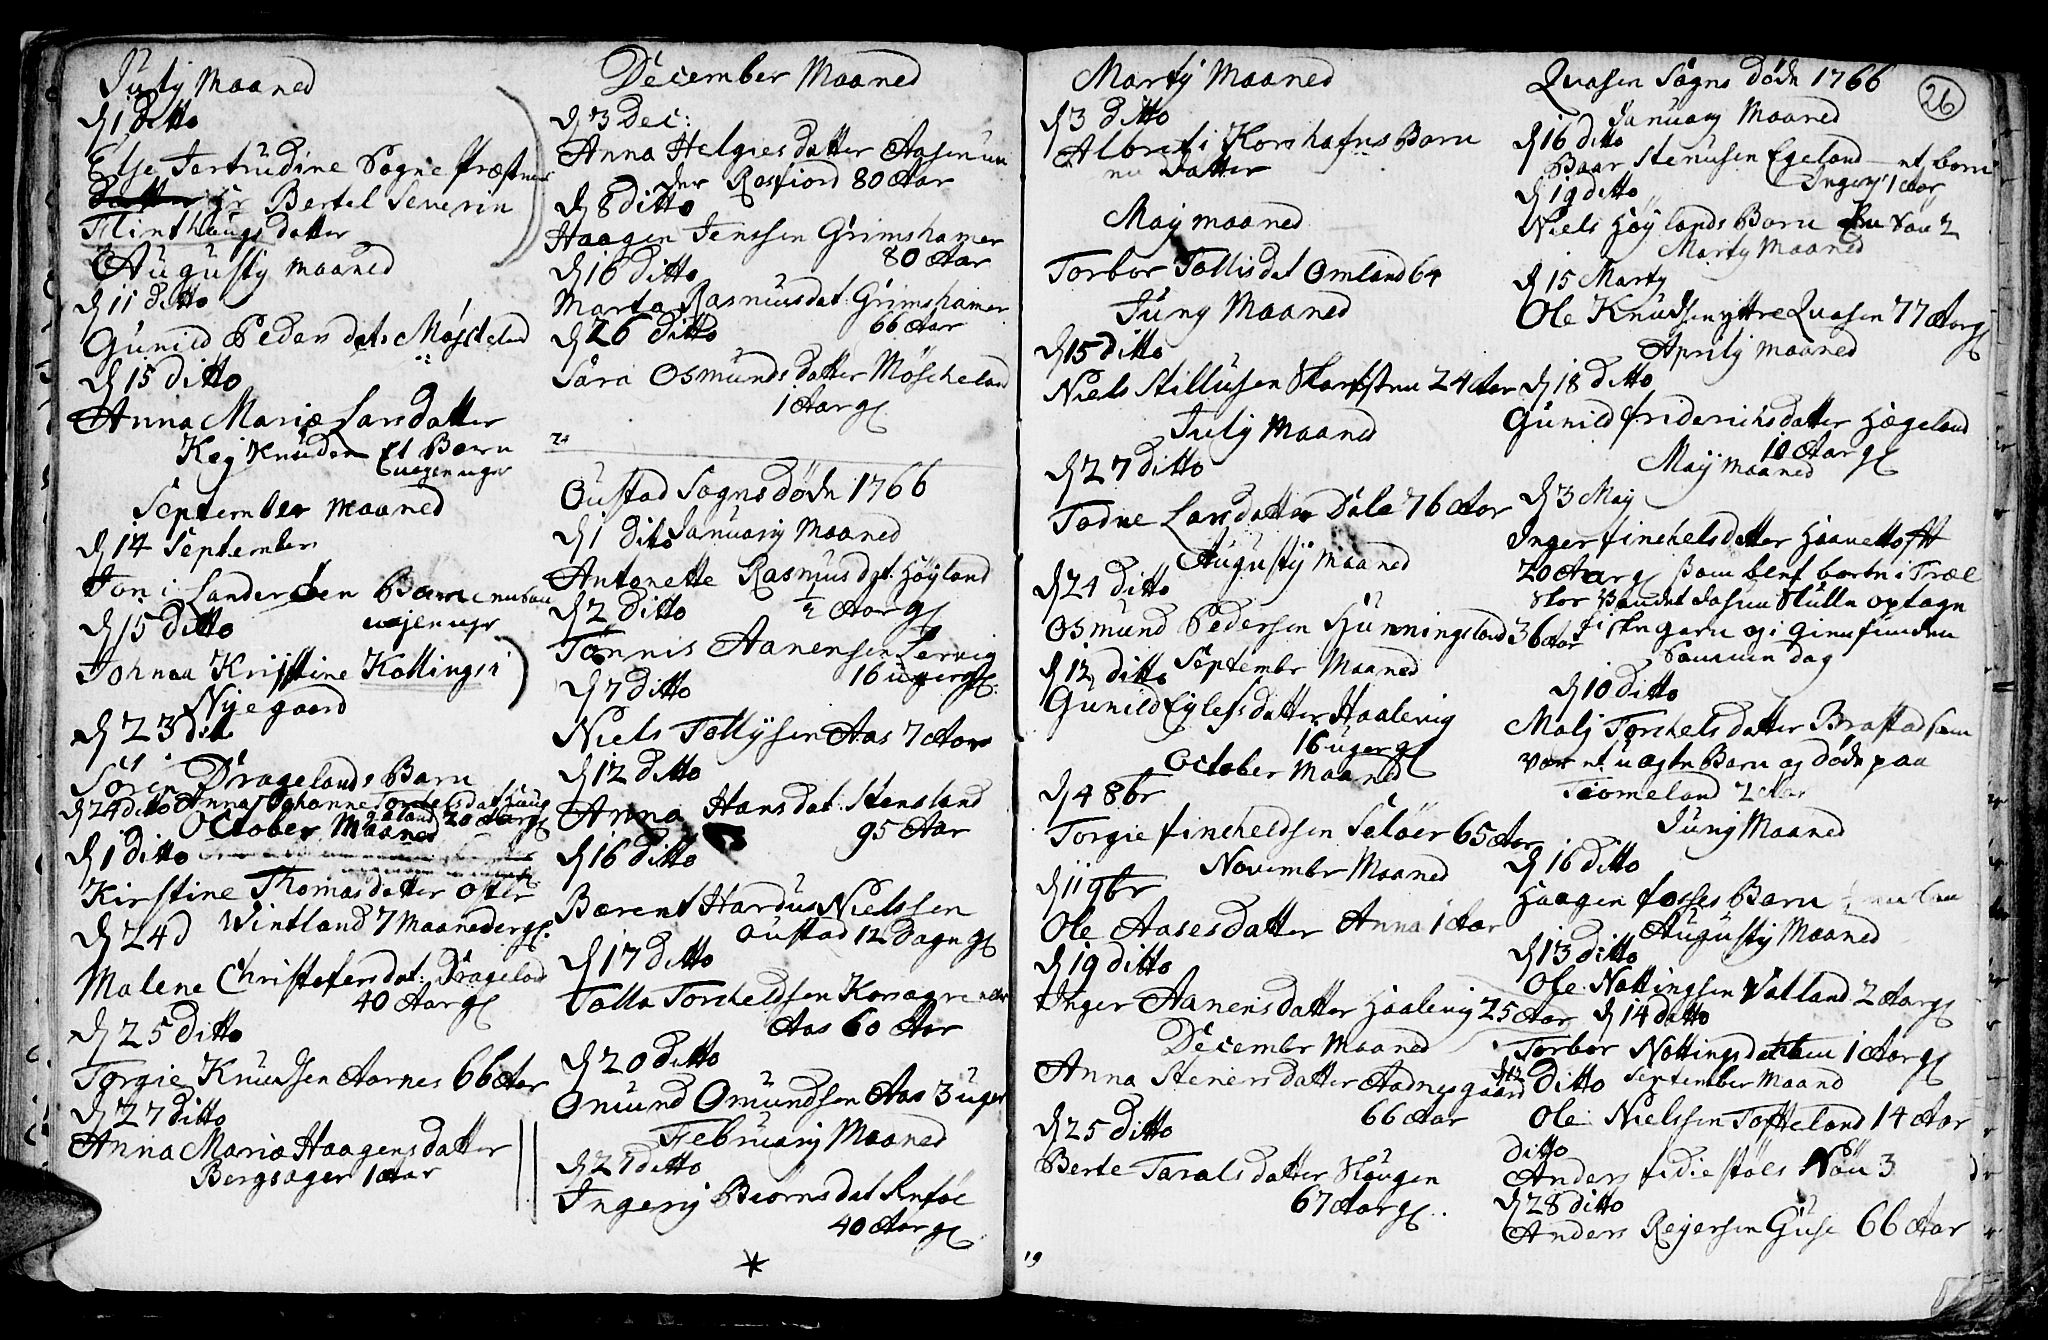 July Maaned
d 1 ditto
Else Jertrudine Sogne Præstens
Hr Bertel Severin
Flinthaugs datter
Augusty maaned
d 11 ditto
Gunild Peders dat: Møscheland
d 15 ditto
Anna Mariæ Larsdatter
Kej Knuden Et Barn
September Maaned
d 14 September
Jon i Landersben Barn
d 15 ditto
Johnaa Kristine Kollings i
Nye gaard
d 23 dit
Sören Dragelands Barn
d 24 ditto Anna Johanne
October Maaned
d 1 ditto
Kirstine Thomasdatter Ofter
Wintland 7 Maaneder g
d 24 d
Malene Christofersdat: Drageland
40 Aar g
d 25 ditto
Torgie Knudssen Aarnes 66 Aar
d 27 ditto
Anna Maria Haagensdatter
Bergsager 1 Aar
December Maaned
d 3 Dec:
Anna Helgiesdatter Aasen un
der Rosfiord 80 Aar
d 8 ditto
Haagen Jenssen Grimshamer
80 Aar
d 16 ditto
Marta Rasmusdat: Grimshamer
66 Aar
d 26 ditto
Sara Osmundsdatter Möscheland
1 Aar g
Oustad Sogns döde 1766
Januarij Maaned
d 1 dito
Antonette Rasmusdat: Höyland
½ Aar g
d 2 ditto
Tönnis Aanensen Jervig
16 uger g
d 7 ditto
Niels Tollysen Aas 7 Aar
d 12 ditto
Anna Hansdat: Stensland
95 Aar
d 16 ditto
Barent Hardus Nielssen
Oustad 12 Dage g
d 17 ditto
Tolla Torcheldsen
Aas 60 Aar
d 20 ditto
Omund Omundsen Aas 3 uger
Februarij Maaned
d 27 ditto
Ingerij Biörnsdat
40 Aar g
*
Marty Maaned
d 3 ditto
Albret i Korshafns Barn
en Datter
May maaned
Torbor Tollisdat Omland 64
Juny Maaned
d 15 ditto
Niels Stillusen 24 Aar
July Maaned
d 27 ditto
Todne Larsdatter Dale 76 Aar
Augusty Maaned
d 24 ditto
Osmund Pedersen Hünningsland 36 Aar
Septembr Maaned
d 12 ditto
Gunild Eylefsdatter Haalevig
16 uger g
October Maaned
d 4 8br
Torgie fincheldsen Selöer 65 Aar
Novembr Maaned
d 11 9br
Ole Aasesdatter Anna 1 Aar
d 19 ditto
Inger Aanensdatter Haalevig 25 Aar
Decembr Maaned
Anna Stenersdatter Aadnesgaard
66 Aar
d 25 ditto
Berte Taralsdatter Skougen
67 Aar g
19
26
Quasen Sogns döde 1766
January Maaned
d 16 ditto
Baar Stenusen Egeland et barn
Ingery 1 Aar
d 19 ditto
Niels Höylands Barn Sön 2
Marty Maaned
d 15 Marty
Ole Knudsen yttre Quasen 77 Aar g
Aprily Maaned
d 18 ditto
Gunild friderichsdatter Hægeland
10 Aar g
May maaned
d 3 May
Inger finchelsdatter
20 Aar g som blef borte i Træl
Skor Vandet da hun skulle optage
fiske garn og i gien funden
Samme dag
d 10 ditto
Malj Torchelsdatter Brastad som
var et uægte Barn og döde paa
Tromeland 2 Aar
Junij Maaned
d 16 ditto
Haagen fosses Barn
Augusty Maaned
d 13 ditto
Ole Nottingsen Vatland 2 Aar g
d 14 datto
Torbor Nottingsdatter 1 Aar g
September Maand
d 12 ditto
Ole Nielssen Tofteland 14 Aar
ditto
Anders fidiestöls Sön 3
d 28 ditto
Anders Reyersen Guse 66 Aar